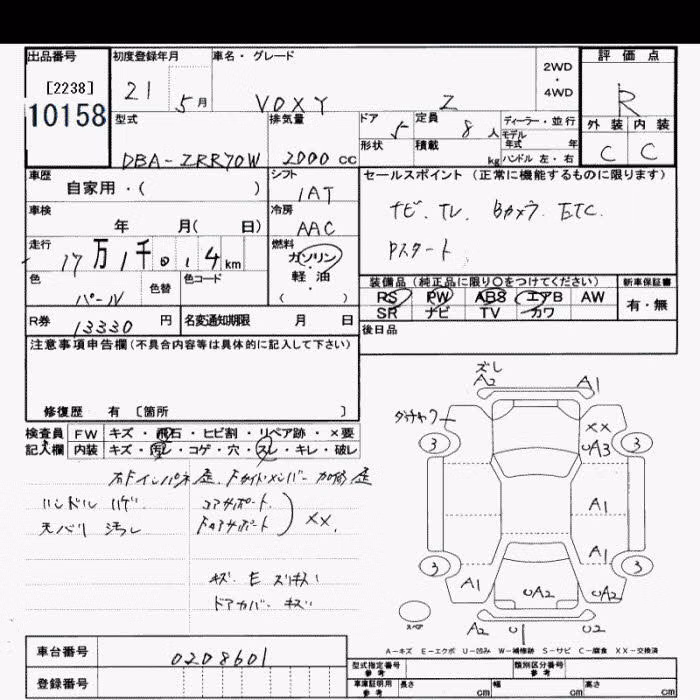 出品番号
[2238]
10158
初度登録年月
21 5月
車名・グレード
VOXY Z
2WD
・
4WD
評価点
R
外装 内装
C C
型式
DBA-ZRR70W
排気量
2000 cc
ドア 5
定員 8 人
形状
積載 kg
ディーラー・並行
モデル
年式 年
ハンドル 左・右
車歴
自家用・( )
シフト
1AT
車検
年 月( 日)
冷房
AAC
走行
17万1千0.4km
燃料
ガソリン
・
軽油
・
( )
色
パール
色替
色コード
R券 13330 円
名変通知期限 月 日
セールスポイント (正常に機能するものに限ります)
ナビ. TV. Bカメラ ETC.
Pスタート
装備品 (純正品に限り○をつけてください)
RS PW ABS エアB AW
SR ナビ TV カワ
新車保証書
有・無
後日品
注意事項申告欄(不具合内容等は具体的に記入して下さい)
修復歴 有 〔箇所 〕
検査員
記入欄
FW キズ・飛石・ヒビ割・リペア跡・×要
内装 キズ・汚レ・コゲ・穴・スレ・キレ・破レ
ハンドル ハゲ
天バリ 汚レ
コアサポート
XX.
キズ. E スリキズ
ドアカバー キズ
ズレ
A2 A1
XX
UA3
3 3
A1
A1
3 3
A1 UA2
UA2
A2 U1 U2
スペア
A-キズ E-エクボ U-凹み W-補修跡 S-サビ C-腐食 XX-交換済
車台番号
0208601
登録番号
型式指定番号
参考
類別区分番号
参考
車庫証明用
参考
長さ cm 幅 cm 高さ cm